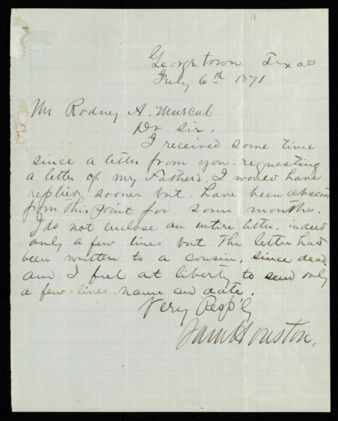 Georgetown Texas
July 6th 1871
Mr Rodney A.
Dr Sir.
I received some time
since a letter from you requesting
a letter of my Father's. I would have
replied sooner but have been absent
from this point for some months.
I do not enclose an entire letter indeed
only a few lines but the letter had
been written to a cousin, since dead,
and I feel at liberty to send only
a few lines name and date.
Very Resp'ly
Sam Houston.